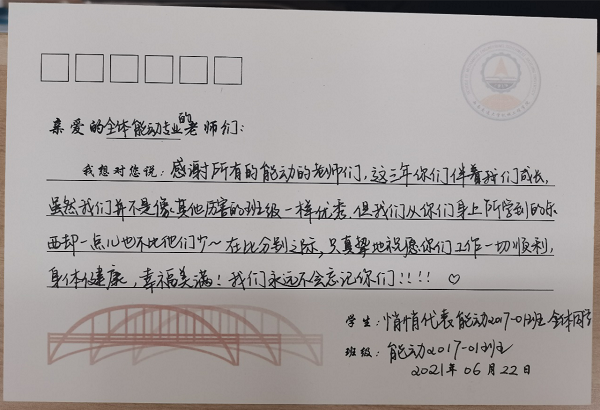 亲爱的全体能动专业的老师们：
我想对您说：感谢所有的能动的老师们，这三年你们伴着我们成长，
虽然我们并不是像其他厉害的班级一样优秀，但我们从你们身上所学到的东
西却一点儿也不比他们少～在比分别之际，只真挚地祝愿你们工作一切顺利，
身体健康，幸福美满！我们永远不会忘记你们！！！！♡
学生：悄悄代表能动2017-01班全体同学
班级：能动2017-01班
2021年06月22日